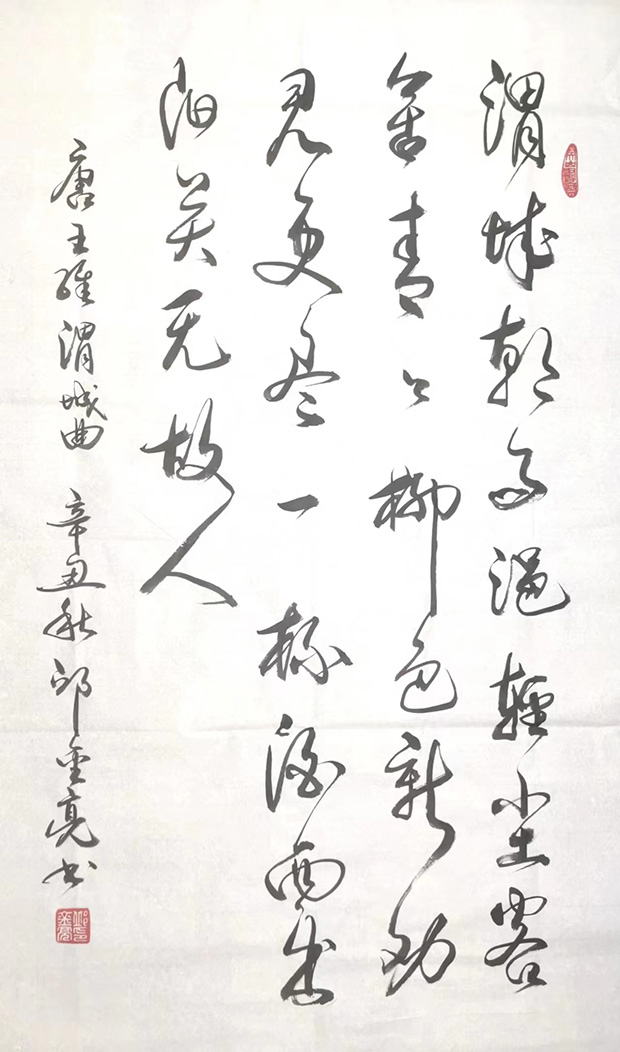 渭城朝雨浥輕尘客
舍青々柳色新劝
君更尽一杯酒西出
阳关无故人
唐王维渭城曲 辛丑秋邱金亮书